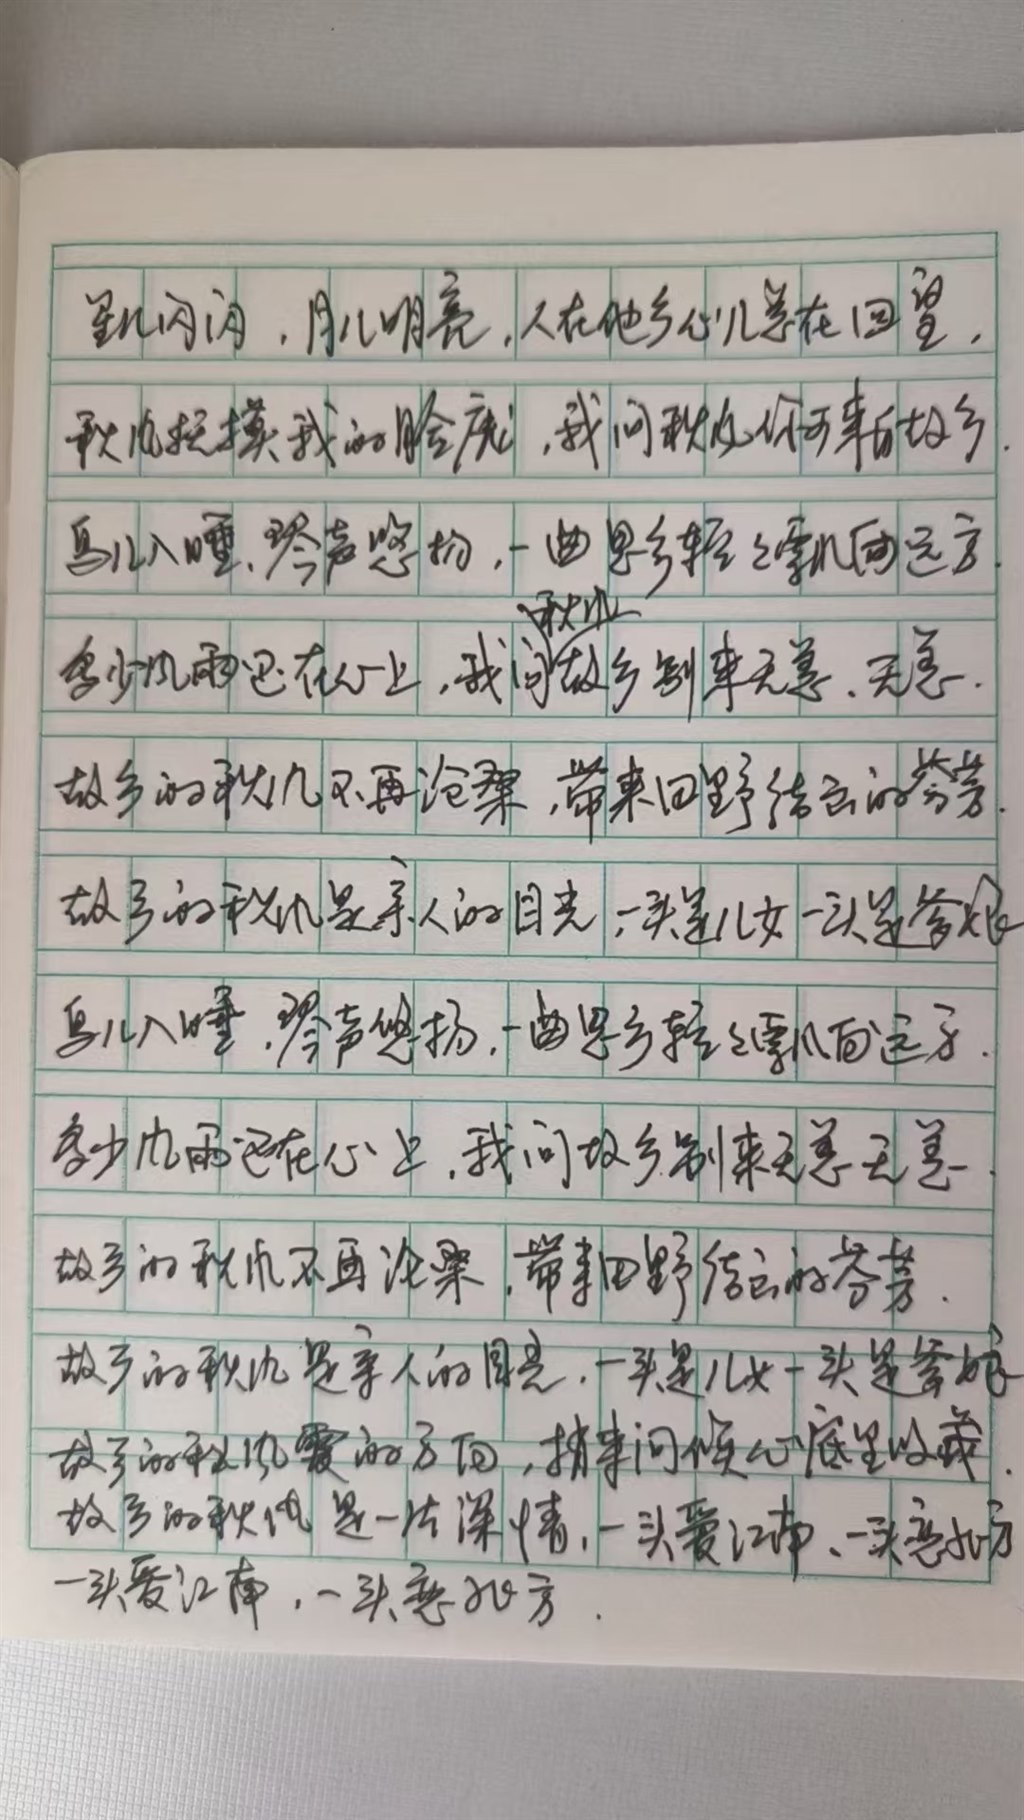 星儿闪闪，月儿明亮，人在他乡心儿总在回望，
秋风抚摸我的脸庞，我问秋风你可来自故乡．
鸟儿入睡，琴声悠扬，一曲思乡轻轻飘向远方．
秋风
多少风雨还在心上，我问故乡别来无恙、无恙．
故乡的秋风不再沧桑，带来田野结云的芬芳．
故乡的秋风是亲人的目光，一头是儿女一头是爹娘
鸟儿入睡，琴声悠扬，一曲思乡轻轻飘向远方．
多少风雨还在心上，我问故乡别来无恙无恙．
故乡的秋风不再沧桑，带来田野结云的芬芳．
故乡的秋风是亲人的目光，一头是儿女一头是爹娘
故乡的秋风爱的方向，捎来问候心底里收藏．
故乡的秋风是一片深情，一头爱江南、一头恋北方
一头爱江南，一头恋北方．